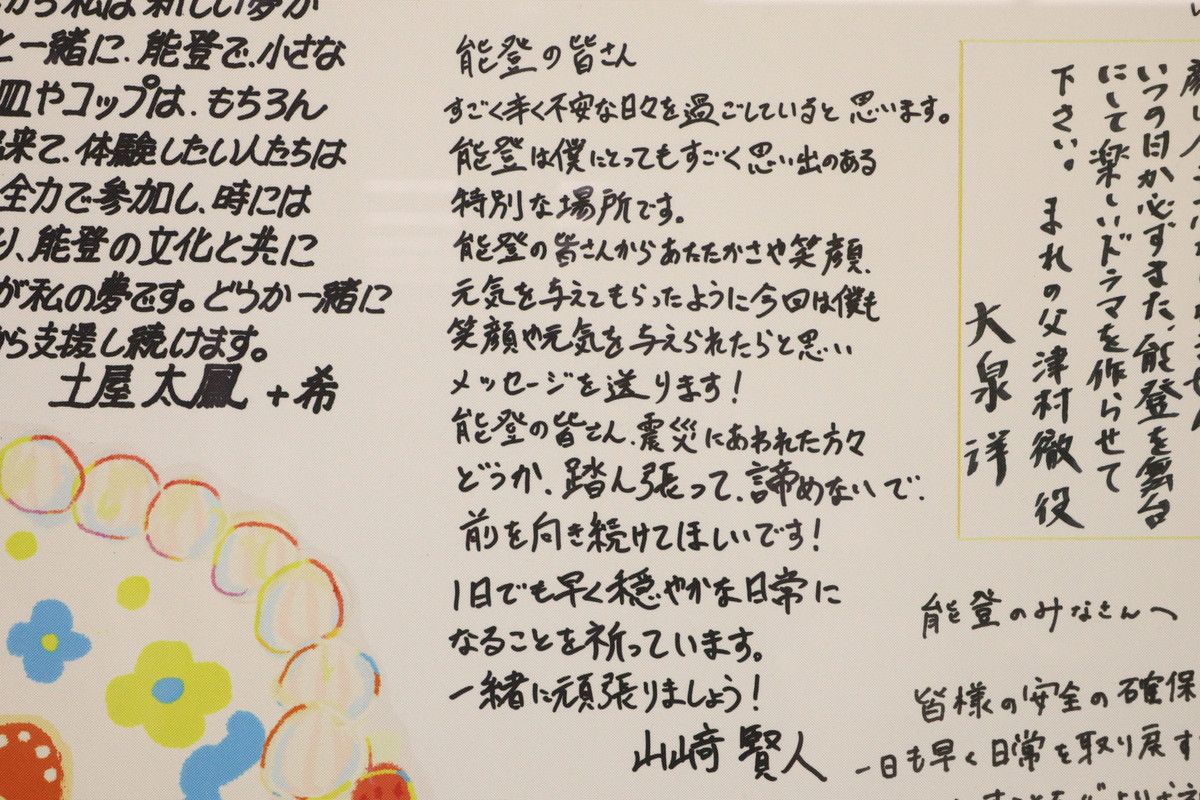 から私は新しい夢が
と一緒に、能登で、小さな
皿やコップは、もちろん
来て、体験したい人たちは
全力で参加し、時には
り、能登の文化と共に
が私の夢です。どうか一緒に
から支援し続けます。
土屋 太鳳 + 希
能登の皆さん
すごく辛く不安な日々を過ごしていると思います。
能登は僕にとってもすごく思い出のある
特別な場所です。
能登の皆さんからあたたかさや笑顔、
元気を与えてもらったように今回は僕も
笑顔や元気を与えられたらと思い
メッセージを送ります!
能登の皆さん、震災にあわれた方々
どうか、踏ん張って、諦めないで、
前を向き続けてほしいです!
1日でも早く穏やかな日常に
なることを祈っています。
一緒に頑張りましょう!
山﨑 賢人
いつの日か必ずまた、能登を舞台
にして楽しいドラマを作らせて
下さい。 まれの父津村徹役
大泉洋
能登のみなさんへ
皆様の安全の確保
一日も早く日常を取り戻す